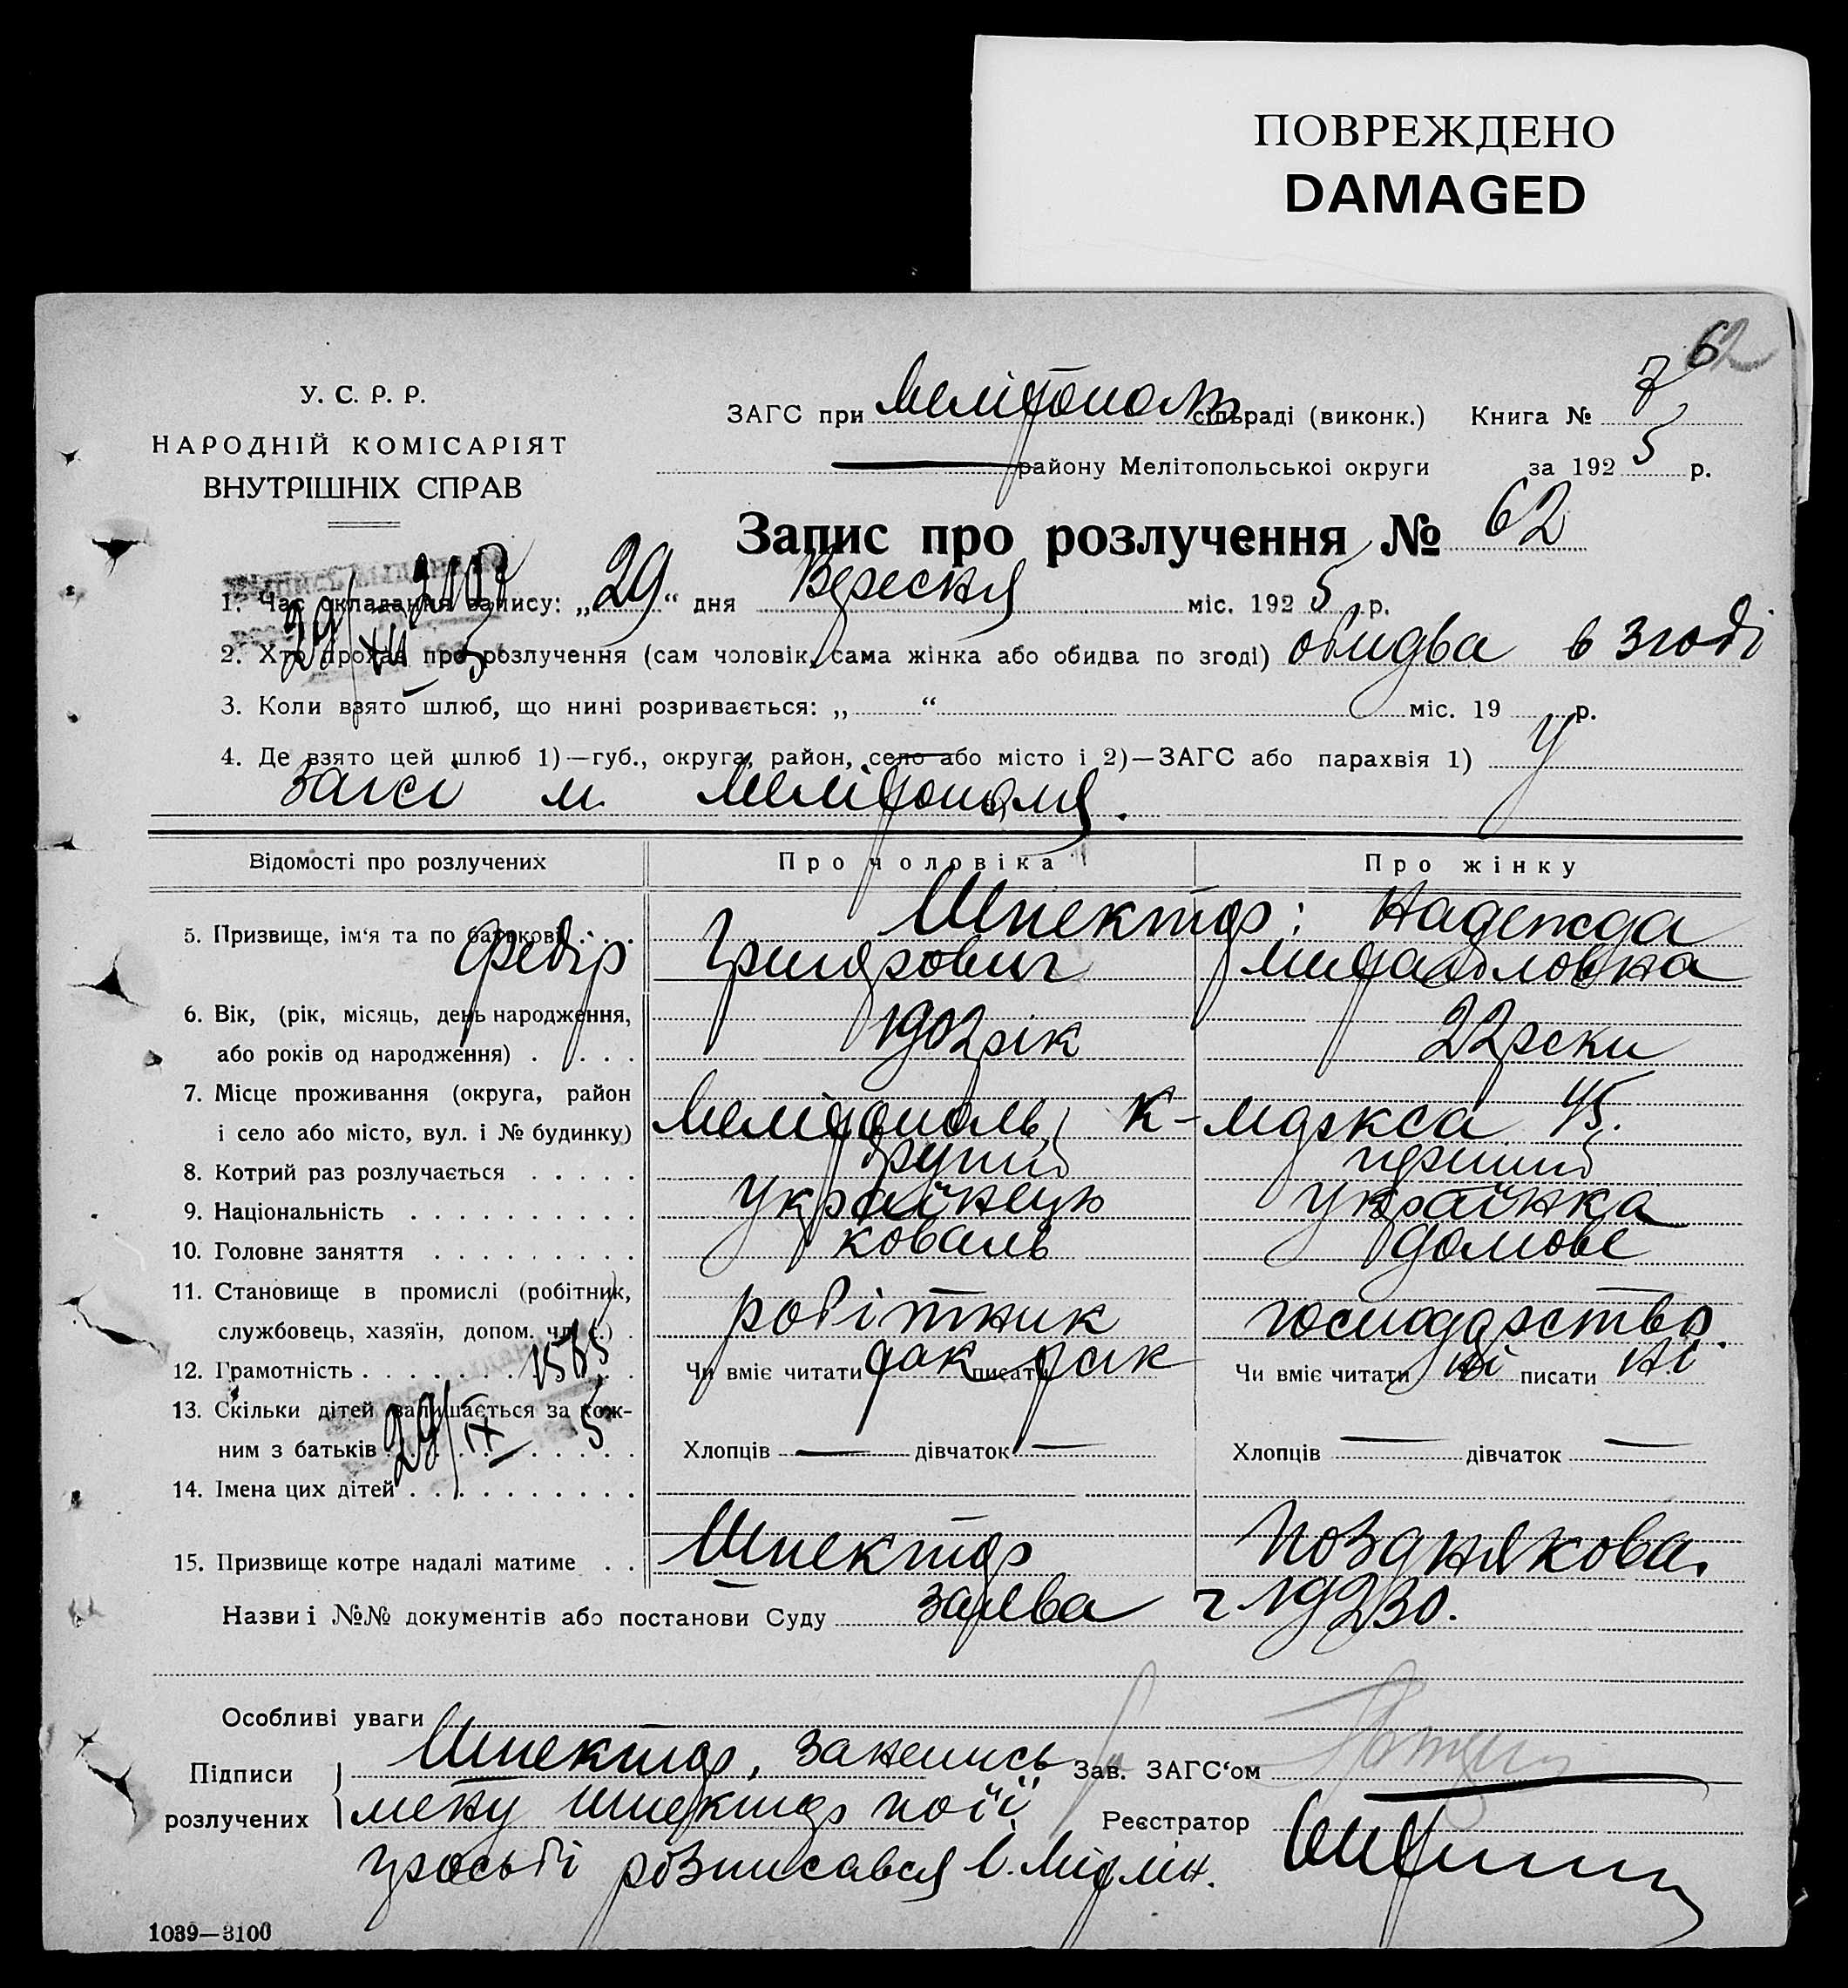 ПОВРЕЖДЕНО
DAMAGED
62
У. С. Р. Р.
НАРОДНІЙ КОМІСАРІЯТ
ВНУТРІШНІХ СПРАВ
ЗАГС при Мелітополь сільраді (виконк.) Книга № 7
району Мелітопольської округи за 1925 р.
Запис про розлучення № 62
1. Час складання запису: „29“ дня Вересня міс. 1925 р.
2. Хто прохав про розлучення (сам чоловік, сама жінка або обидва по згоді) обидва в згоді
3. Коли взято шлюб, що нині розривається: „ “ міс. 19 р.
4. Де взято цей шлюб 1)—губ., округа, район, село або місто і 2)—ЗАГС або парахвія 1) у
загсі м. Мелітополя.
Відомості про розлучених Про чоловіка Про жінку
5. Призвище, ім‘я та по батькові . . . Шпектор: Надежда
Федір Григорович Михайловна
6. Вік, (рік, місяць, день народження,
або років од народження) . . . . 1902 рік 22 роки
7. Місце проживання (округа, район
і село або місто, вул. і № будинку) Мелітополь, К-Маркса 45.
8. Котрий раз розлучається . . . . . другий перший
9. Національність . . . . . . . . . . українець українка
10. Головне заняття . . . . . . . . . коваль домове
11. Становище в промислі (робітник,
службовець, хазяїн, допом. чл. с.) . робітник господарство.
12. Грамотність . . . . . . . . 1565 Чи вміє читати так писати так Чи вміє читати ні писати ні
13. Скільки дітей залишається за кож-
ним з батьків 29/IX 5 Хлопців — дівчаток — Хлопців — дівчаток —
14. Імена цих дітей . . . . . . . . . .
15. Призвище котре надалі матиме . . Шпектор Позднякова.
Назви і №№ документів або постанови Суду заява ч 19230.
Особливі уваги
Підписи Шпектор, Зав. ЗАГС‘ом
розлучених Шпектор по її Реєстратор
просьбі розписався
1039—3100